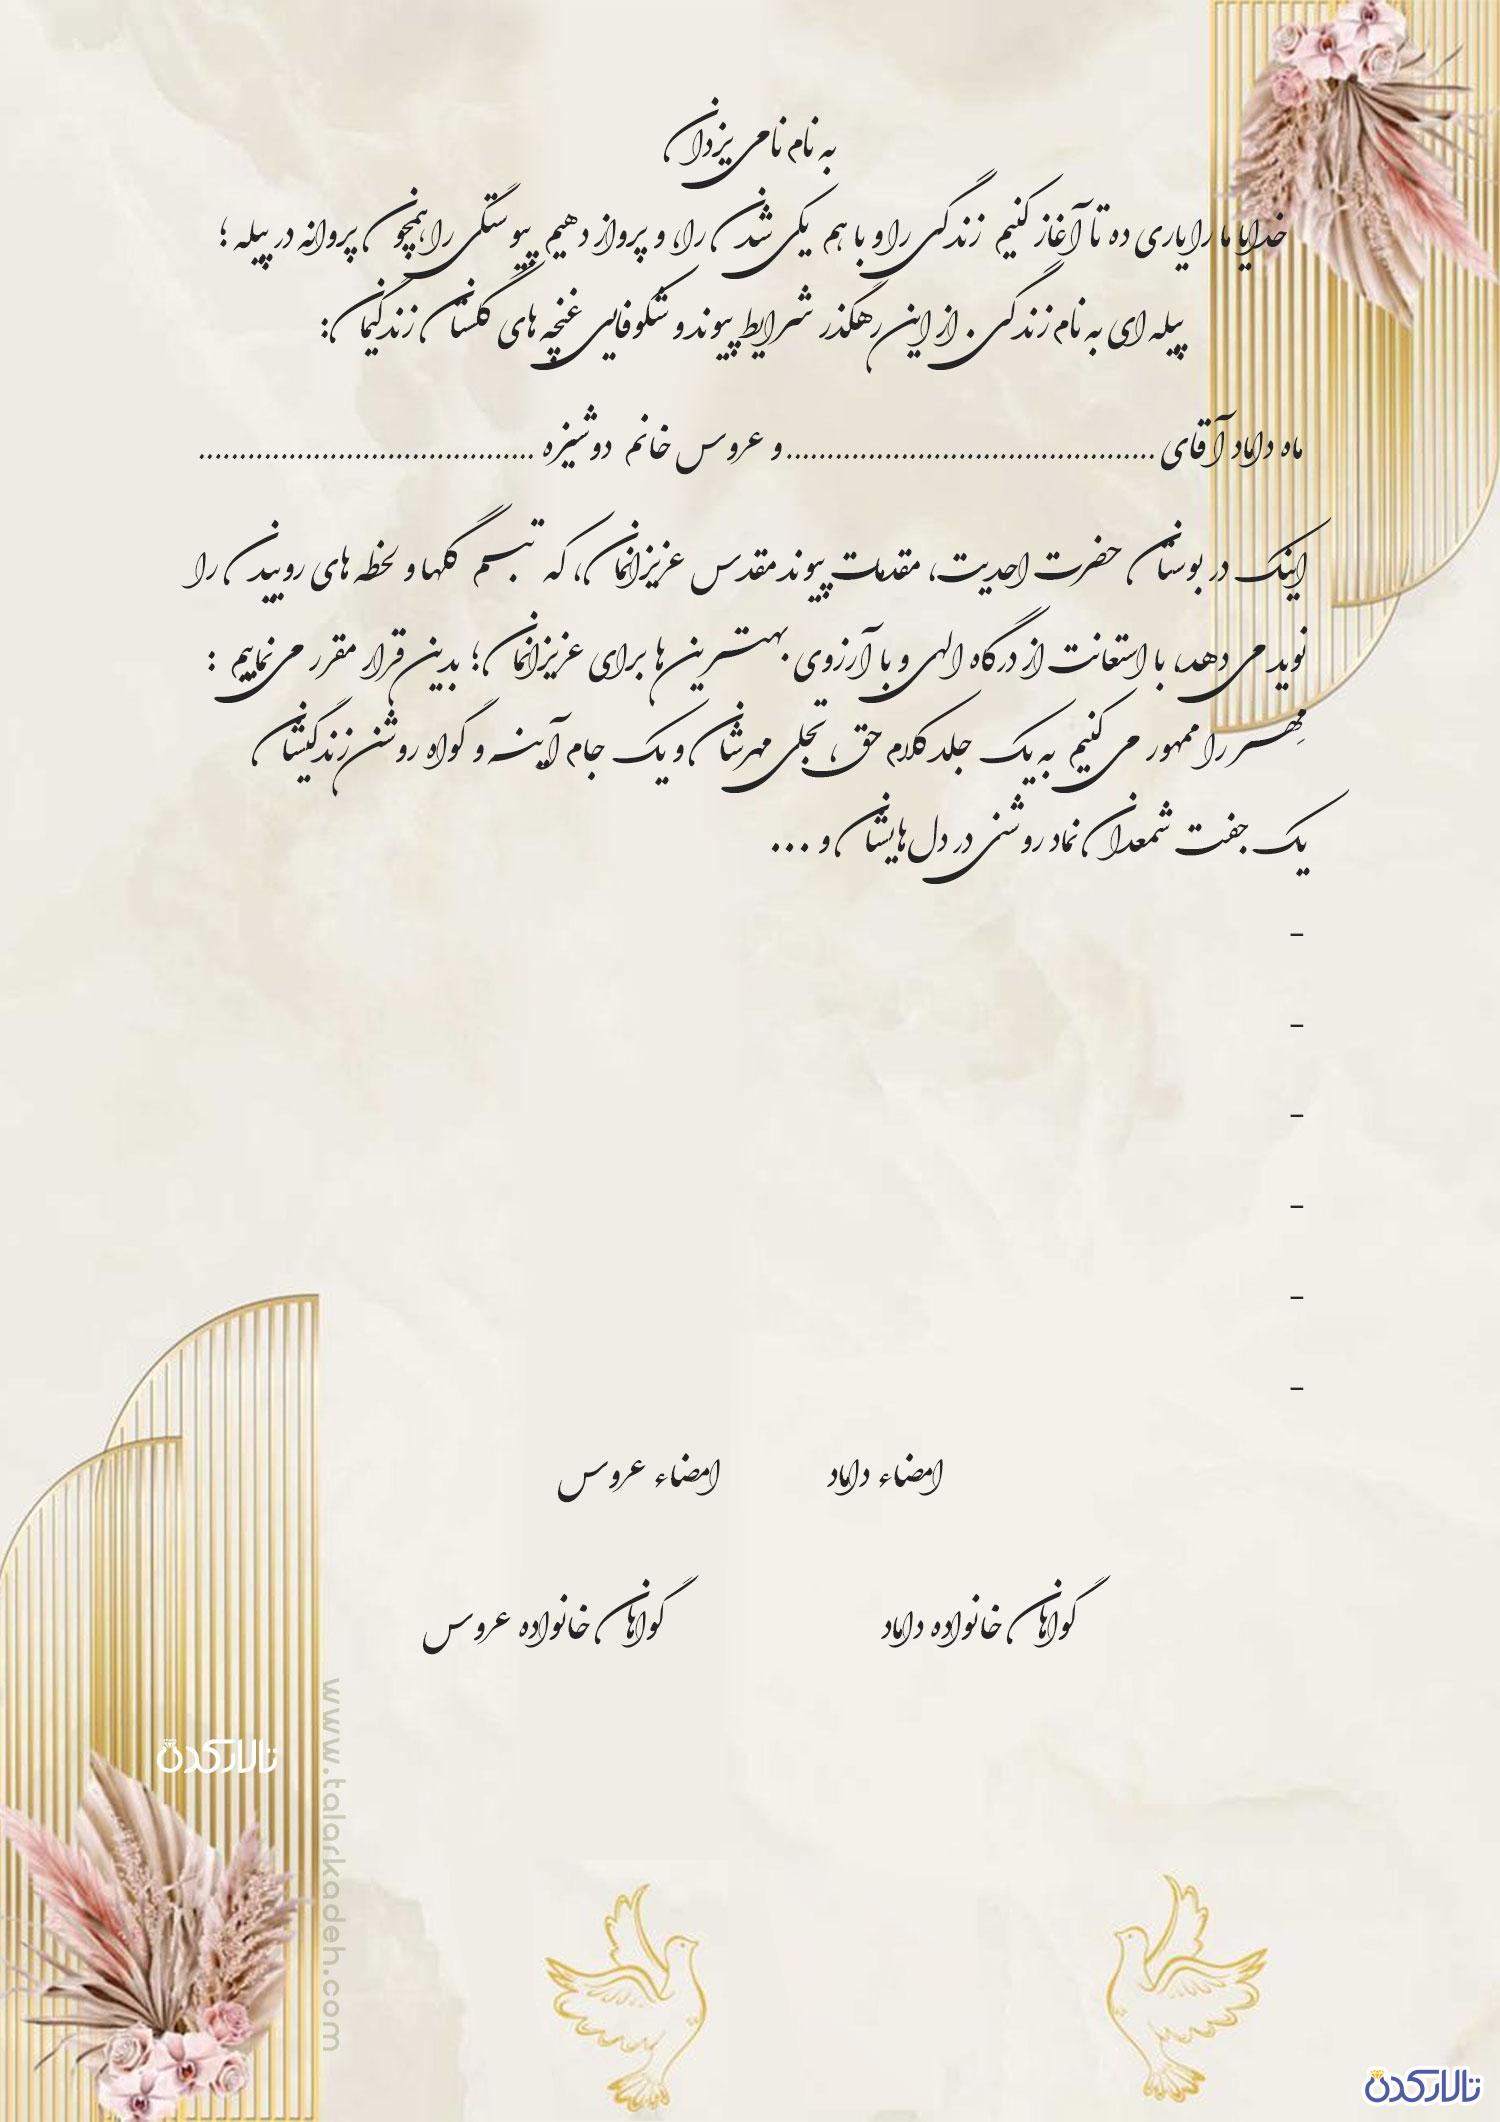 به نام نامی یزدان
خدایا ما را یاری ده تا آغاز کنیم زندگی را و با هم یکی شدن را، و پرواز دهیم پیوستگی را،همچون پروانه در پیله ؛
پیله ای به نام زندگی . از این رهگذر شرایط پیوند و شکوفایی غنچه های گلستان زندگیمان:
ماه داماد آقای ............................................. و عروس خانم دوشیزه .........................................
اینک در بوستان حضرت احدیت، مقدمات پیوند مقدس عزیزانمان، که تبسم گلها و لحظه های روییدن را
نوید می دهد، با استعانت از درگاه الهی و با آرزوی بهترین ها برای عزیزانمان؛ بدین قرار مقرر می نماییم :
مِهر را ممهور می کنیم به یک جلد کلام حق، تجلی مهرشان و یک جام آینه و گواه روشن زندگیشان
یک جفت شمعدان نماد روشنی در دل هایشان و ...
-
-
-
-
-
-
امضاء داماد امضاء عروس
گواهان خانواده داماد گواهان خانواده عروس
تالارکده
www.talarkadeh.com
تالارکده